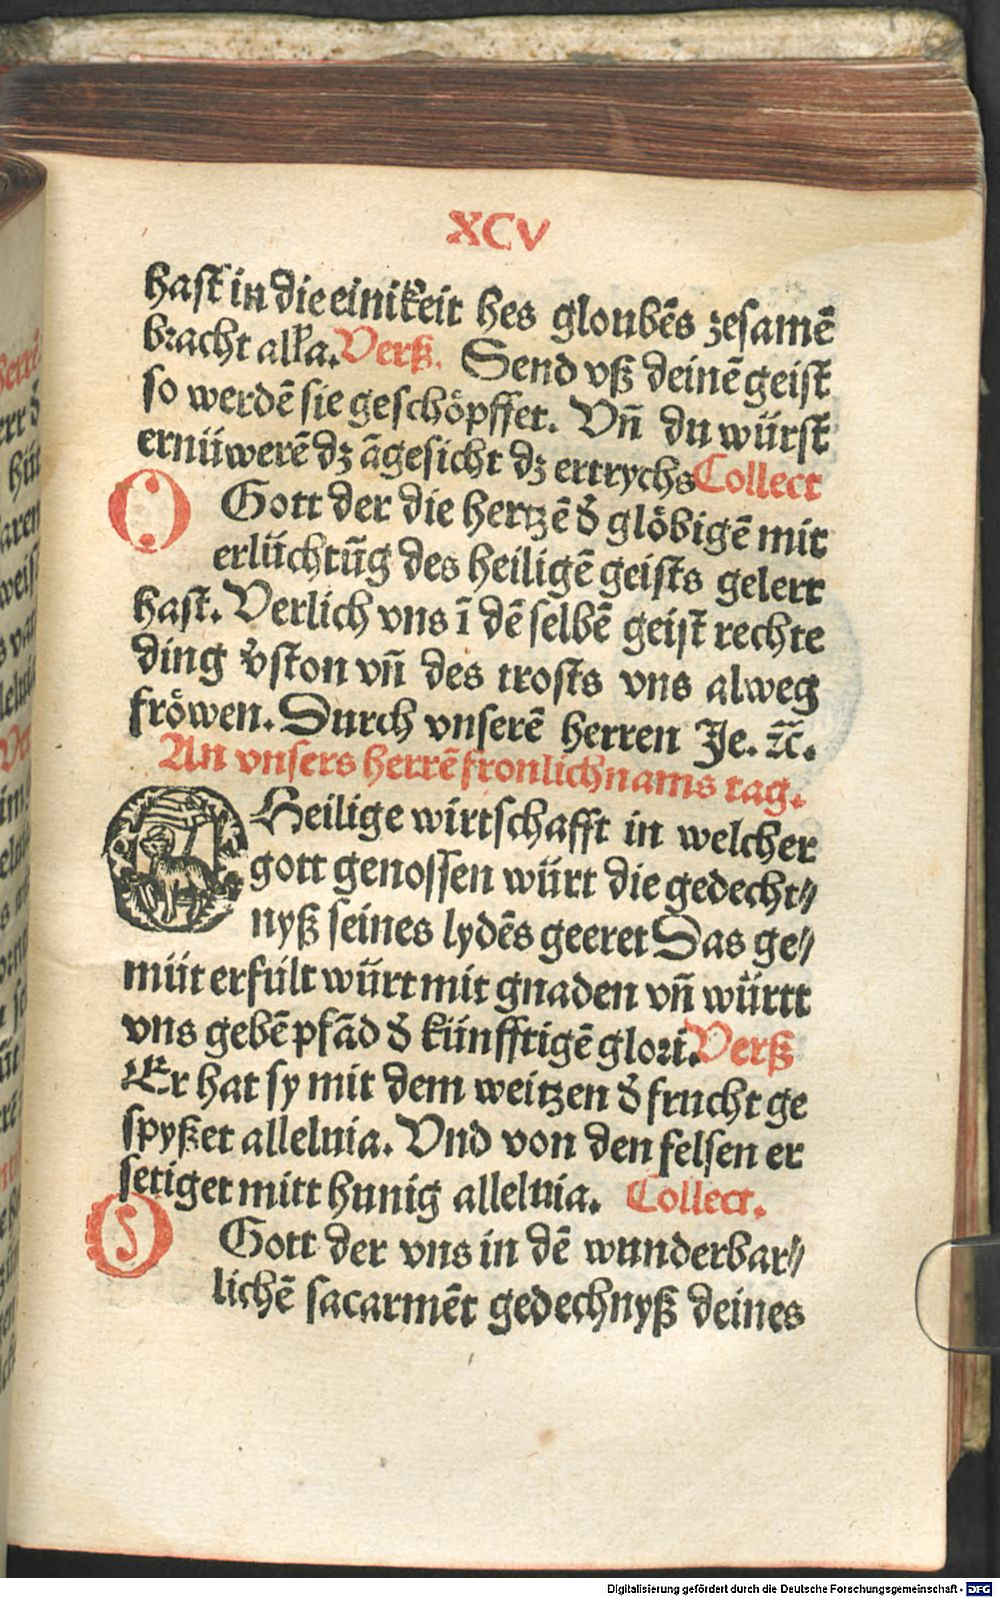 XCV
hast in die einikeit hes gloubēs zesamē
bracht alla. Verß. Send vß deinē geist
so werdē sie geschöpffet. Vñ du würst
ernüwerē dz āgesicht dz ertrychs Collect
O Gott der die hertzē d̄ glöbigē mit
erlüchtūg des heiligē geists gelert
hast. Verlich vns ī dē selbē geist rechte
ding v̄ston vñ des trosts vns alweg
fröwen. Durch vnserē herren Je. ⁊c̄.
An vnsers herrē fronlichnams tag.
O Heilige wirtschafft in welcher
gott genossen würt die gedecht⸗
nyß seines lydēs geeret Das ge⸗
müt erfült würt mit gnaden vñ württ
vns gebē pfād d̄ künfftigē glori. Verß
Er hat sy mit dem weitzen d̄ frucht ge
spyßet alleluia. Vnd von den felsen er
setiget mitt hunig alleluia. Collect.
O Gott der vns in dē wunderbar⸗
lichē sacarmēt gedechnyß deines
Digitalisierung gefördert durch die Deutsche Forschungsgemeinschaft - DFG